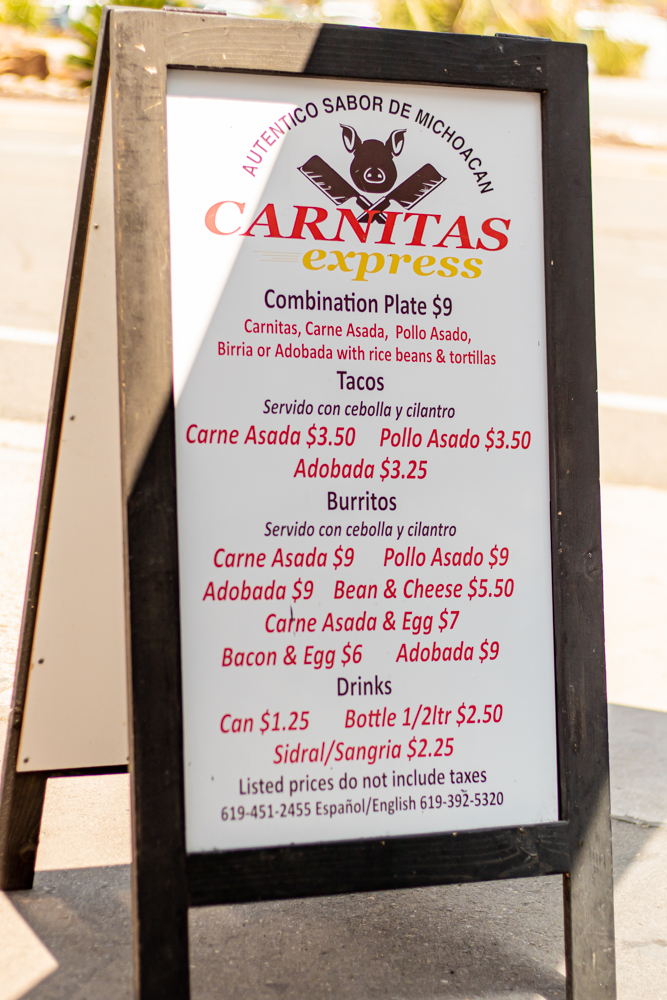 AUTENTICO SABOR DE MICHOACAN
CARNITAS
express
Combination Plate $9
Carnitas, Carne Asada, Pollo Asado,
Birria or Adobada with rice beans & tortillas
Tacos
Servido con cebolla y cilantro
Carne Asada $3.50 Pollo Asado $3.50
Adobada $3.25
Burritos
Servido con cebolla y cilantro
Carne Asada $9 Pollo Asado $9
Adobada $9 Bean & Cheese $5.50
Carne Asada & Egg $7
Bacon & Egg $6 Adobada $9
Drinks
Can $1.25 Bottle 1/2ltr $2.50
Sidral/Sangria $2.25
Listed prices do not include taxes
619-451-2455 Español/English 619-392-5320